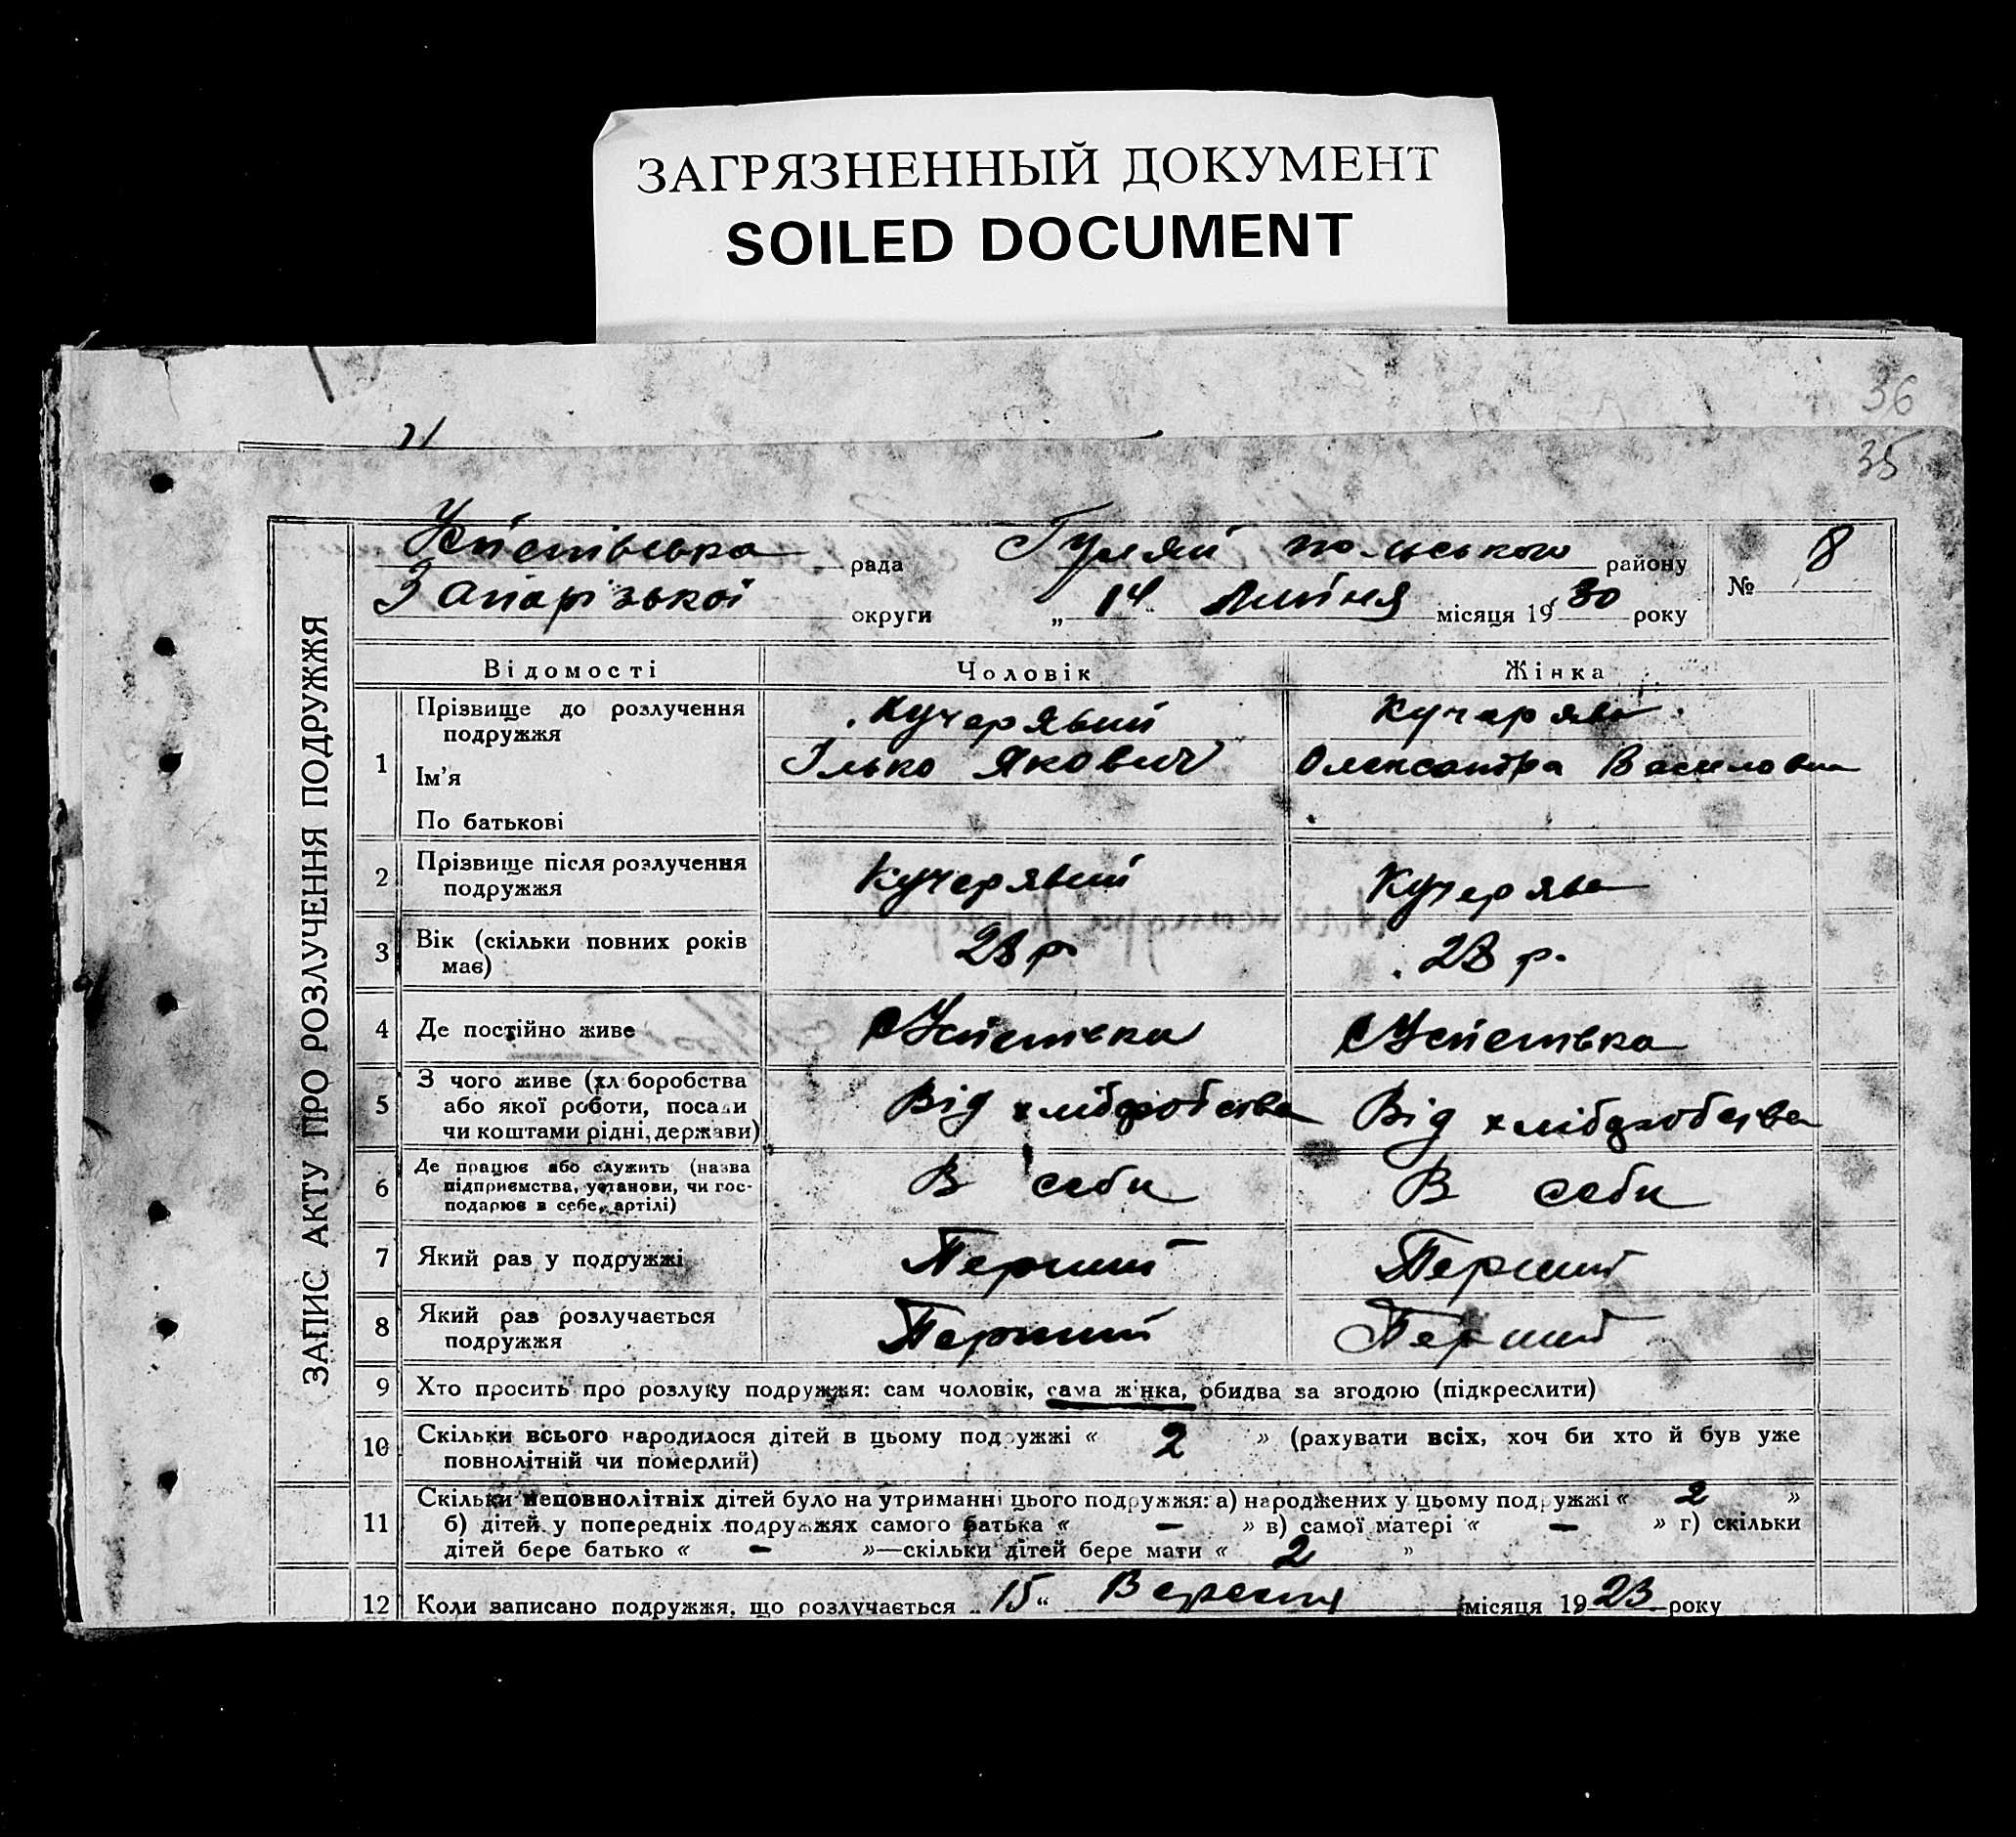 ЗАГРЯЗНЕННЫЙ ДОКУМЕНТ
SOILED DOCUMENT
36
35
ЗАПИС АКТУ ПРО РОЗЛУЧЕННЯ ПОДРУЖЖЯ
Успенівська рада Гуляй польського району № 8
Запорізької округи „ 14 " Липня місяця 1930 року
Відомості Чоловік Жінка
1 Прізвище до розлучення подружжя Кучерявий Кучерява
Ім'я Ілько Якович Олександра Василовна
По батькові
2 Прізвище після розлучення подружжя Кучерявий Кучерява
3 Вік (скільки повних років має) 28 р. 28 р.
4 Де постійно живе
5 З чого живе (хліборобства або якої роботи, посади чи коштами рідні, держави) Від хліборобства Від хліборобства
6 Де працює або служить (назва підприємства, установи, чи господарює в себе, артілі) В себи В себи
7 Який раз у подружжі Перший Перший
8 Який раз розлучається подружжя Перший Перший
9 Хто просить про розлуку подружжя: сам чоловік, сама жінка, обидва за згодою (підкреслити)
10 Скільки всього народилося дітей в цьому подружжі « 2 » (рахувати всіх, хоч би хто й був уже
повнолітній чи померлий)
11 Скільки неповнолітніх дітей було на утриманні цього подружжя: а) народжених у цьому подружжі « 2 »
б) дітей у попередніх подружжях самого батька « – » в) самої матері « – » г) скільки
дітей бере батько « – »—скільки дітей бере мати « 2 »
12 Коли записано подружжя, що розлучається „ 15 " Вересня місяця 1923 року